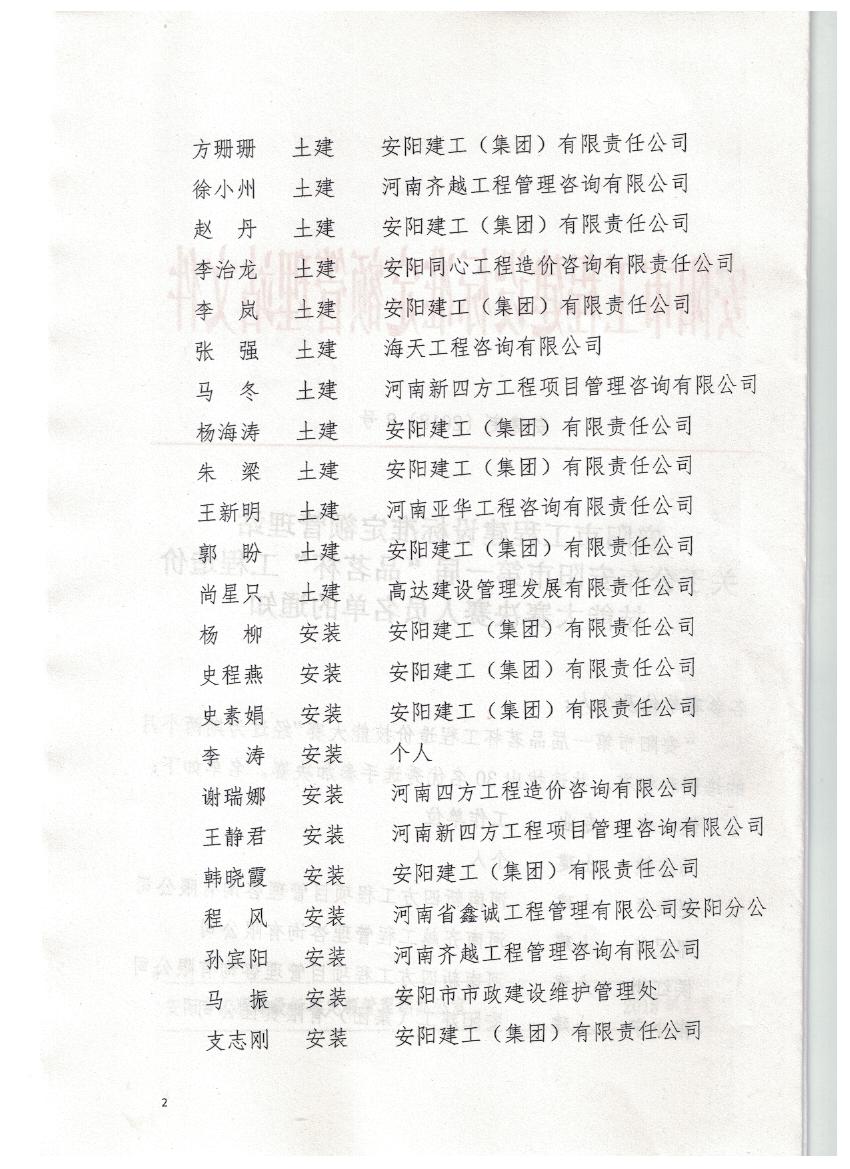 方珊珊 土建 安阳建工（集团）有限责任公司
徐小州 土建 河南齐越工程管理咨询有限公司
赵 丹 土建 安阳建工（集团）有限责任公司
李治龙 土建 安阳同心工程造价咨询有限责任公司
李 岚 土建 安阳建工（集团）有限责任公司
张 强 土建 海天工程咨询有限公司
马 冬 土建 河南新四方工程项目管理咨询有限公司
杨海涛 土建 安阳建工（集团）有限责任公司
朱 梁 土建 安阳建工（集团）有限责任公司
王新明 土建 河南亚华工程咨询有限公司
郭 盼 土建 安阳建工（集团）有限责任公司
尚星只 土建 高达建设管理发展有限责任公司
杨 柳 安装 安阳建工（集团）有限责任公司
史程燕 安装 安阳建工（集团）有限责任公司
史素娟 安装 安阳建工（集团）有限责任公司
李 涛 安装 个人
谢瑞娜 安装 河南四方工程造价咨询有限公司
王静君 安装 河南新四方工程项目管理咨询有限公司
韩晓霞 安装 安阳建工（集团）有限责任公司
程 风 安装 河南省鑫诚工程管理有限公司安阳分公
孙宾阳 安装 河南齐越工程管理咨询有限公司
马 振 安装 安阳市市政建设维护管理处
支志刚 安装 安阳建工（集团）有限责任公司
2